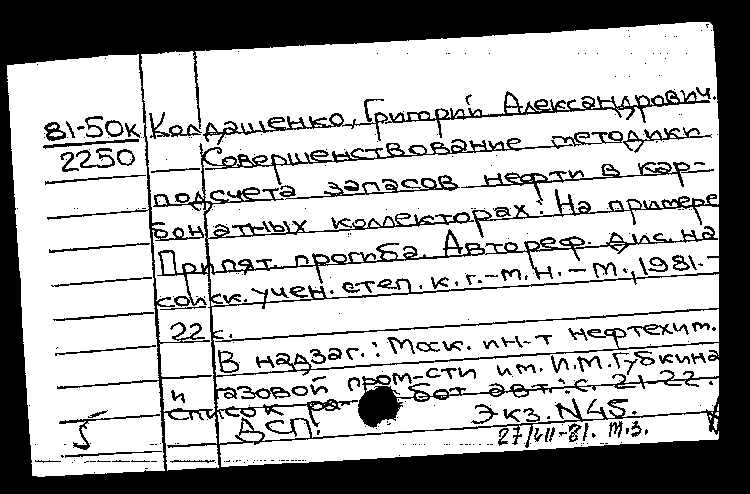 81-50к Колдашенко, Григорий Александрович.
2250 Совершенствование методики
подсчета запасов нефти в кар-
бонатных коллекторах: На примере
Припят. прогиба. Автореф. дис. на
соиск. учен. степ. к. г.-м. н. - М., 1981. -
22 с.
В надзаг.: Моск. ин-т нефтехим.
и газовой пром-сти им. И.М. Губкина
список работ авт.: с. 21-22.
5 ДСП. Экз. N45.
27/VII-81. т.з.